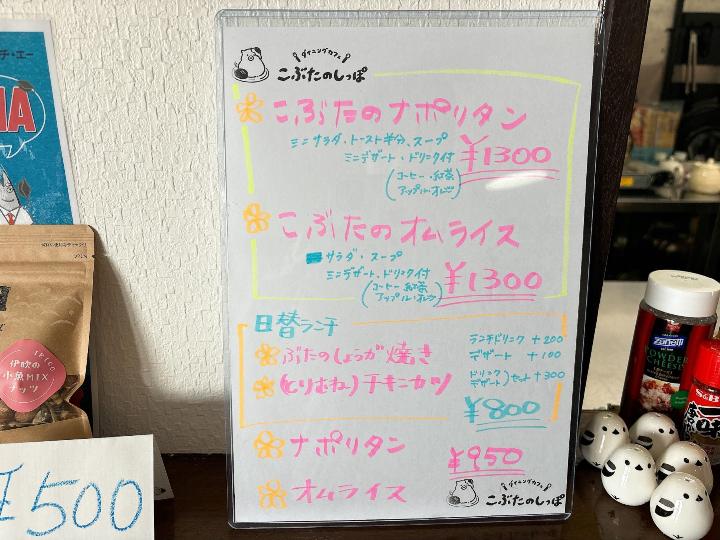 ダイニングカフェ
こぶたのしっぽ
こぶたのナポリタン
ミニサラダ・トースト半分、スープ
ミニデザート・ドリンク付
(コーヒー・紅茶
アップル・オレンジ)
¥1300
こぶたのオムライス
サラダ・スープ
ミニデザート・ドリンク付
(コーヒー 紅茶
アップル・オレンジ)
¥1300
日替ランチ
ぶたのしょうが焼き
(とりむね)チキンカツ
ランチドリンク +200
デザート +100
ドリンク
デザート)セット+300
¥800
ナポリタン
¥950
オムライス
ダイニングカフェ
こぶたのしっぽ
伊吹の
小魚MIX
ナッツ
¥500
Zanetti
POWDER
CHEESE
S&B